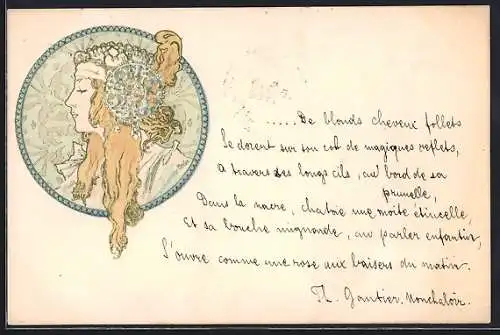 .....De blonds cheveux follets
Se dorent sur son col de magiques reflets,
A travers ses longs cils, au bord de sa
prunelle,
Dans la nacre, chatoie une moite étincelle,
Et sa bouche mignarde, au parler enfantin,
S'ouvre comme une rose aux baisers du matin.
Th. Gautier, Nonchaloir.